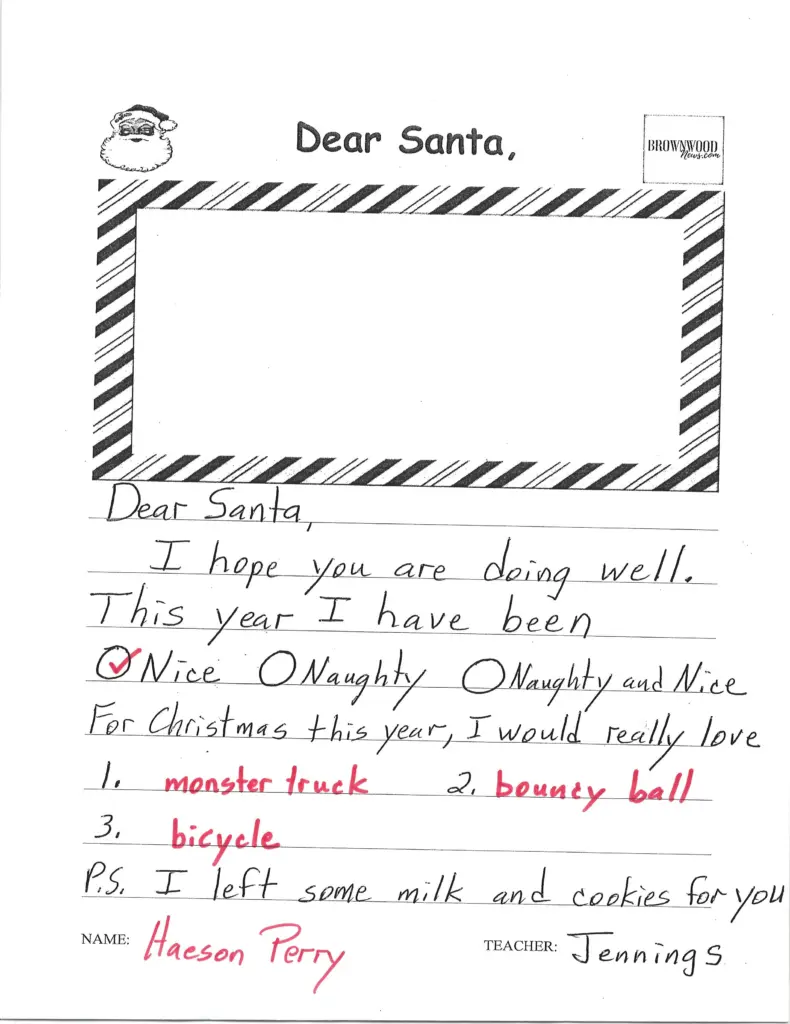 Dear Santa,
BROWNWOOD
News.com
Dear Santa,
I hope you are doing well.
This year I have been
Nice Naughty Naughty and Nice
For Christmas this year, I would really love
1. monster truck 2. bouncy ball
3. bicycle
P.S. I left some milk and cookies for you
NAME: Haeson Perry TEACHER: Jennings